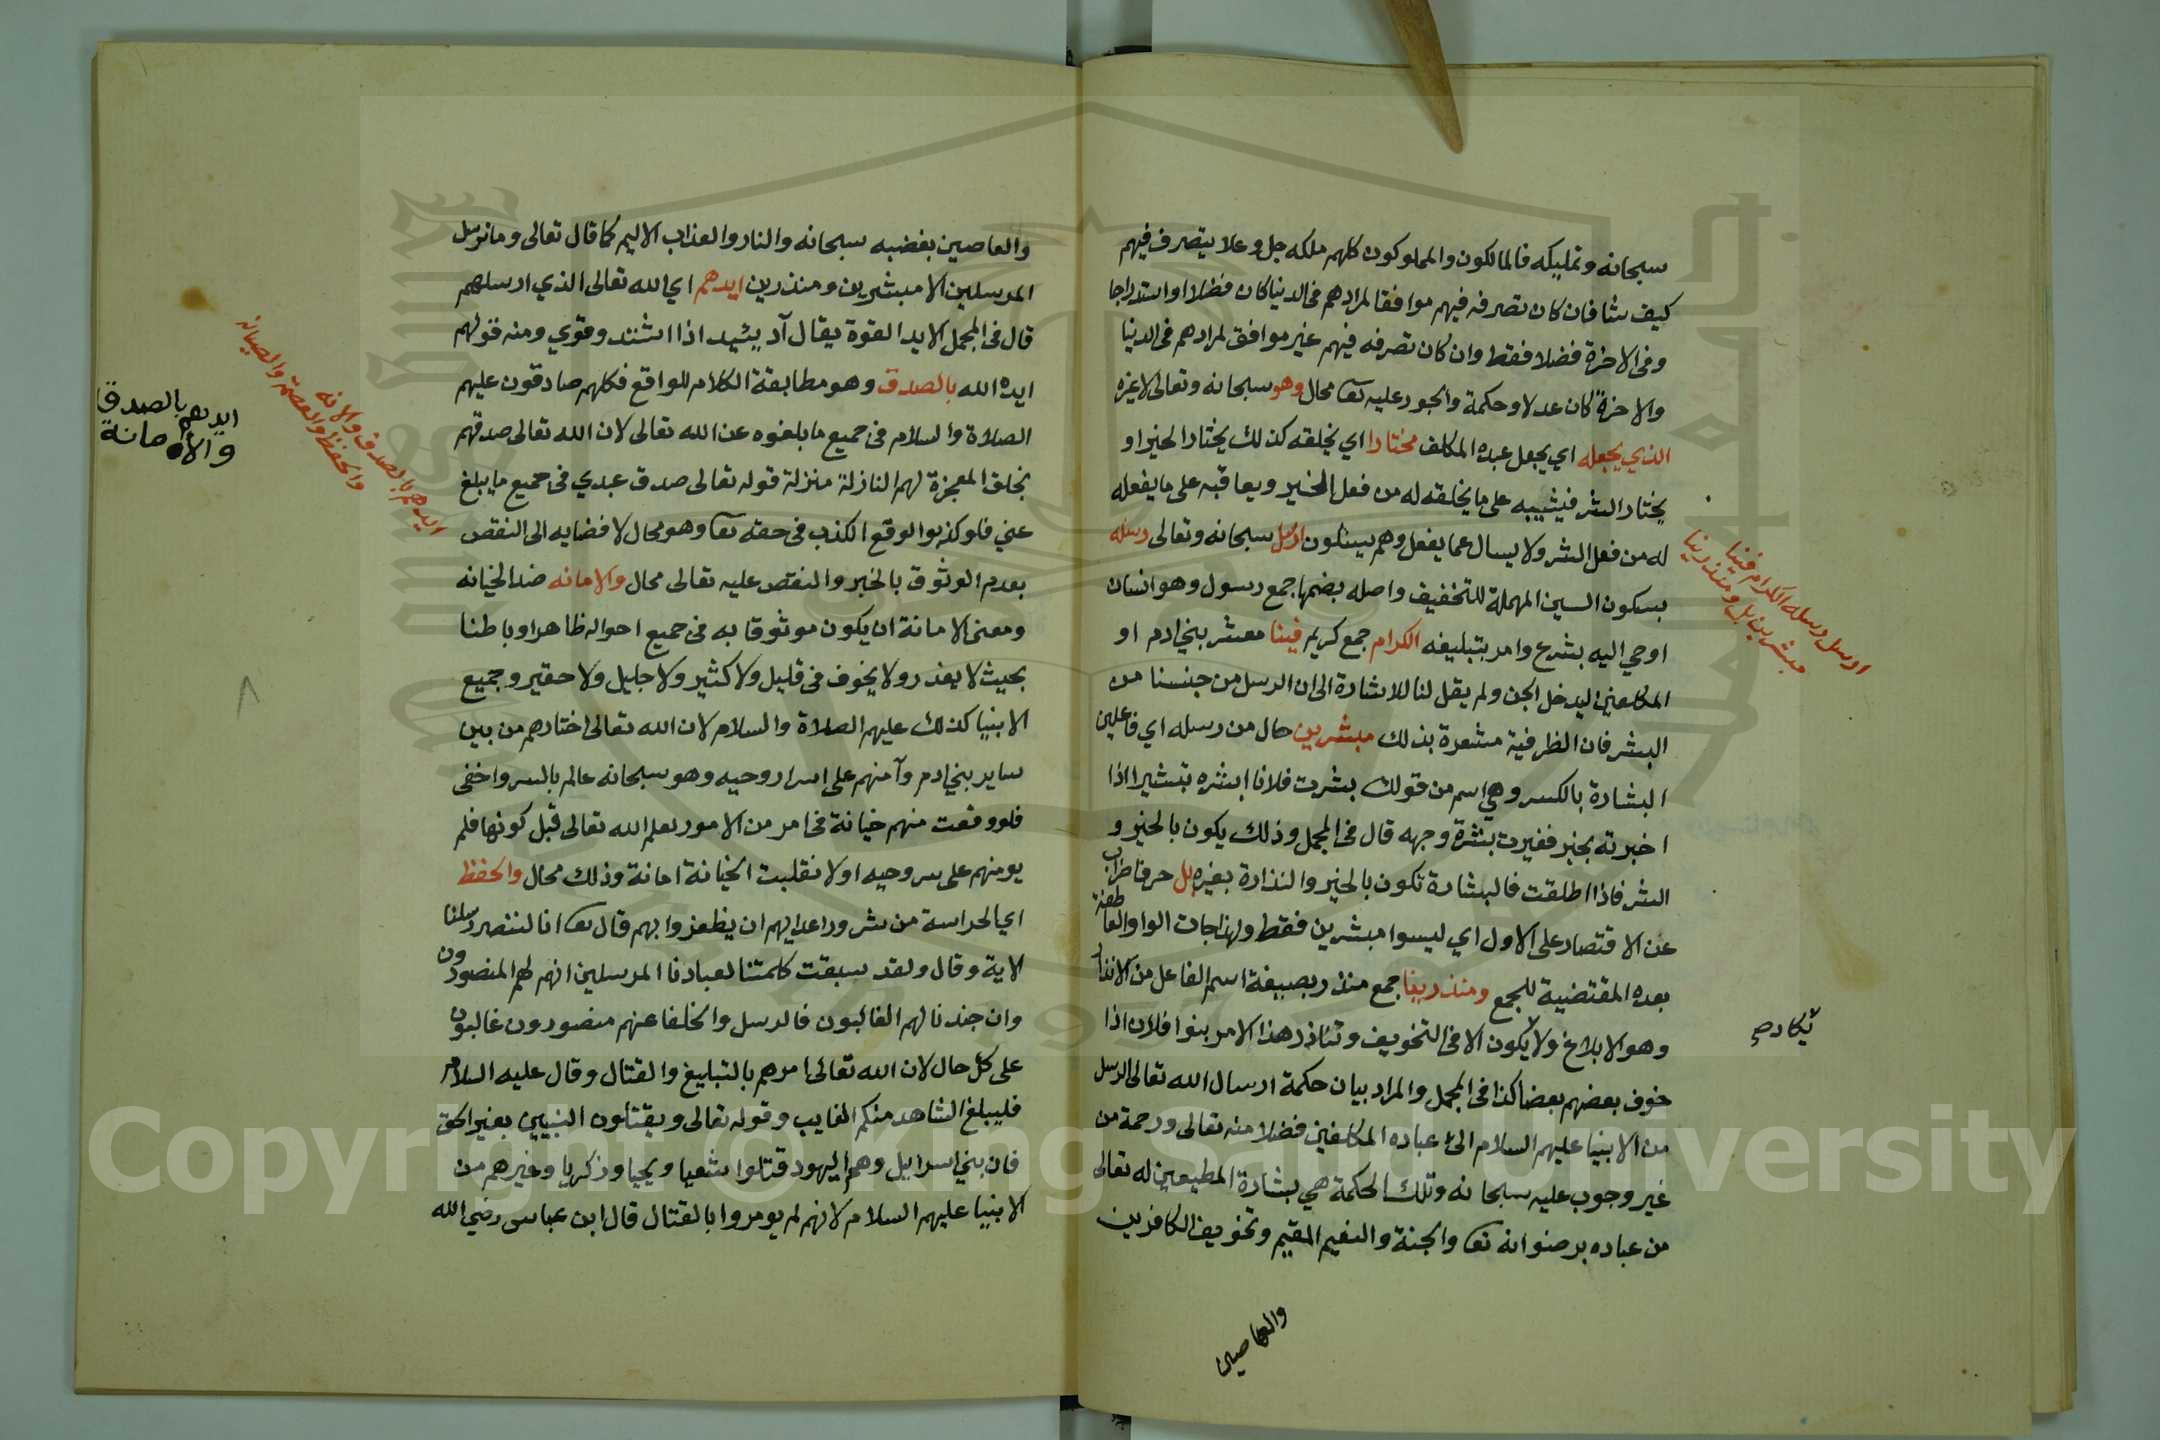 سبحانه وتمليكه فالمالكون والمملوكون كلهم ملكه جل وعلا يتصرف فيهم
كيف شا فان كان تصرفه فيهم موافقا لمرادهم فى الدنيا كان فضلا او استدراجا
وفى الاخرة فضلا فقط وان كان تصرفه فيهم غير موافق لمرادهم فى الدنيا
والاخرة كان عدلا وحكمة والجور عليه تعا محال وهو سبحانه وتعالى لا غيره
الذي يجعله اي يجعل عبده المكلف مختارا اي يخلقه كذلك يختار الخير او
يختار الشر فيثيبه على ما يخلقه له من فعل الخير ويعاقبه على ما يفعله
له من فعل الشر ولا يسال عما يفعل وهم يسئلون ارسل سبحانه وتعالى رسله
بسكون السين المهملة للتخفيف واصله بضمها جمع رسول وهو انسان
اوحي اليه بشرع وامر بتبليغه الكرام جمع كريم فينا معشر بني ادم او
المكلفين ليدخل الجن ولم يقل لنا للاشارة الى ان الرسل من جنسنا من
البشر فان الظرفية مشعرة بذلك مبشرين حال من رسله اي فاعلين
البشارة بالكسر وهي اسم من قولك بشرت فلانا ابشره تبشيرا اذا
اخبرته بخبر فغيرت بشرة وجهه قال فى المجمل وذلك يكون بالخير و
الشر فاذا اطلقت فالبشارة تكون بالخير والنذارة بغيره بل حرف اضراب
عن الاقتصار على الاول اي ليسوا مبشرين فقط ولهذا جات الواو العاطفة
بعده المقتضية للجمع ومنذرينا جمع منذر بصيغة اسم الفاعل من الانذار
وهو الابلاغ ولا يكون الا فى التخويف وتناذر هذا الامر بنوا فلان اذا
خوف بعضهم بعضا كذا فى المجمل والمراد بيان حكمة ارسال الله تعالى الرسل
من الانبيا عليهم السلام الى عباده المكلفين فضلا منه تعالى ورحمة من
غير وجوب عليه سبحانه وتلك الحكمة هي بشارة المطيعين له تعالى
من عباده برضوانه تعا والجنة والنعيم المقيم وتخويف الكافرين
والعاصين
ارسل رسله الكرام فينا
مبشرين بل ومنذرينا
والعاصين بغضبه سبحانه والنار والعذاب الاليم كما قال تعالى وما نرسل
المرسلين الا مبشرين ومنذرين ايدهم اي الله تعالى الذي ارسلهم
قال فى المجمل الايد القوة يقال آد يئيد اذا اشتد وقوي ومنه قولهم
ايده الله بالصدق وهو مطابقة الكلام للواقع فكلهم صادقون عليهم
الصلاة والسلام فى جميع ما بلغوه عن الله تعالى لان الله تعالى صدقهم
بخلق المعجزة لهم النازلة منزلة قوله تعالى صدق عبدي فى جميع ما يبلغ
عني فلو كذبوا لوقع الكذب فى حقه تعا وهو محال لافضايه الى النقص
بعدم الوثوق بالخبر والنقص عليه تعالى محال والامانه ضد الخيانه
ومعنى الامانة ان يكون موثوقا به فى جميع احواله ظاهرا وباطنا
بحيث لا يغدر ولا يخوف فى قليل ولا كثير ولا جليل ولا حقير وجميع
الانبيا كذلك عليهم الصلاة والسلام لان الله تعالى اختارهم من بين
ساير بني ادم وآمنهم على اسرار وحيه وهو سبحانه عالم بالسر واخفى
فلو وقعت منهم خيانة فى امر من الامور لعلم الله تعالى قبل كونها فلم
يومنهم على سر وحيه اولا نقلبت الخيانة امانة وذلك محال والحفظ
اي الحراسة من شرور اعدايهم ان يظفروا بهم قال تعا انا لننصر رسلنا
الاية وقال ولقد سبقت كلمتنا لعبادنا المرسلين انهم لهم المنصورون
وان جندنا لهم الغالبون فالرسل والخلفا عنهم منصورون غالبون
على كل حال لان الله تعالى امرهم بالتبليغ والقتال وقال عليه السلام
فليبلغ الشاهد منكم الغايب وقوله تعالى ويقتلون النبيين بغير الحق
فان بني اسرايل وهم اليهود قتلوا شعيا ويحيا وزكريا وغيرهم من
الانبيا عليهم السلام لانهم لم يومروا بالقتال قال ابن عباس رضي الله
ايدهم بالصدق والامانه
والحفظ والعصمة والصيانه
ايدهم بالصدق
والامانة
Copyright © King Saud University